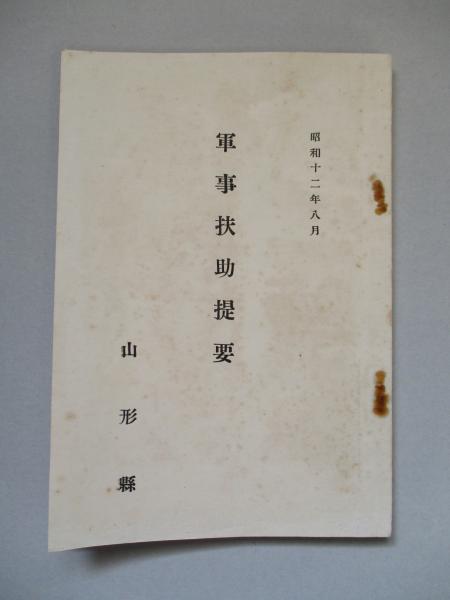 昭和十二年八月
軍事扶助提要
山形縣